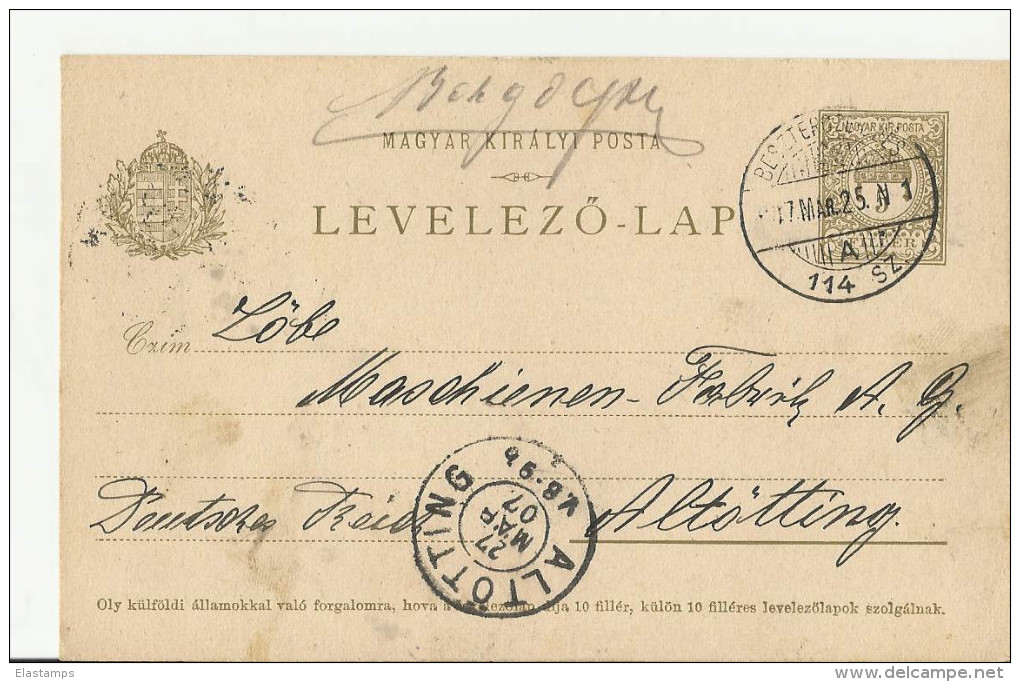 MAGYAR KIRÁLYI POSTA
MAGYAR KIR. POSTA
FILLÉR
BESZTER
17 MAR. 25. N 1
A
114 SZ.
LEVELEZŐ-LAP
Czim
Löbe
Maschienen-Fabrik A. G.
Deutsches Reich Altötting.
ALTÖTTING
27
MÄR
07
V.8-9
Oly külföldi államokkal való forgalomra, hova a díja 10 fillér, külön 10 filléres levelezőlapok szolgálnak.
Elastamps
delcampe.net